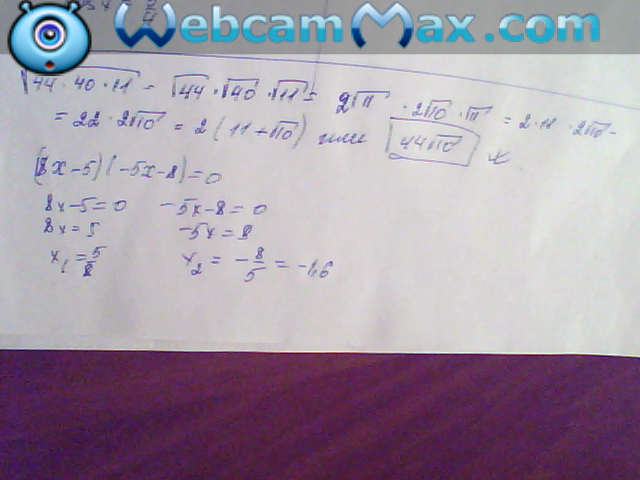 WebcamMax.com
√44 · 40 · 11 = √44 · √40 · √11 = 2√11 · 2√10 · √11 = 2 · 11 · 2√10 =
= 22 · 2√10 = 2(11+√10) или 44√10
(8x-5)(-5x-8)=0
8x-5=0 -5x-8=0
8x=5 -5x=8
x₁=5/8 x₂ = -8/5 = -1,6